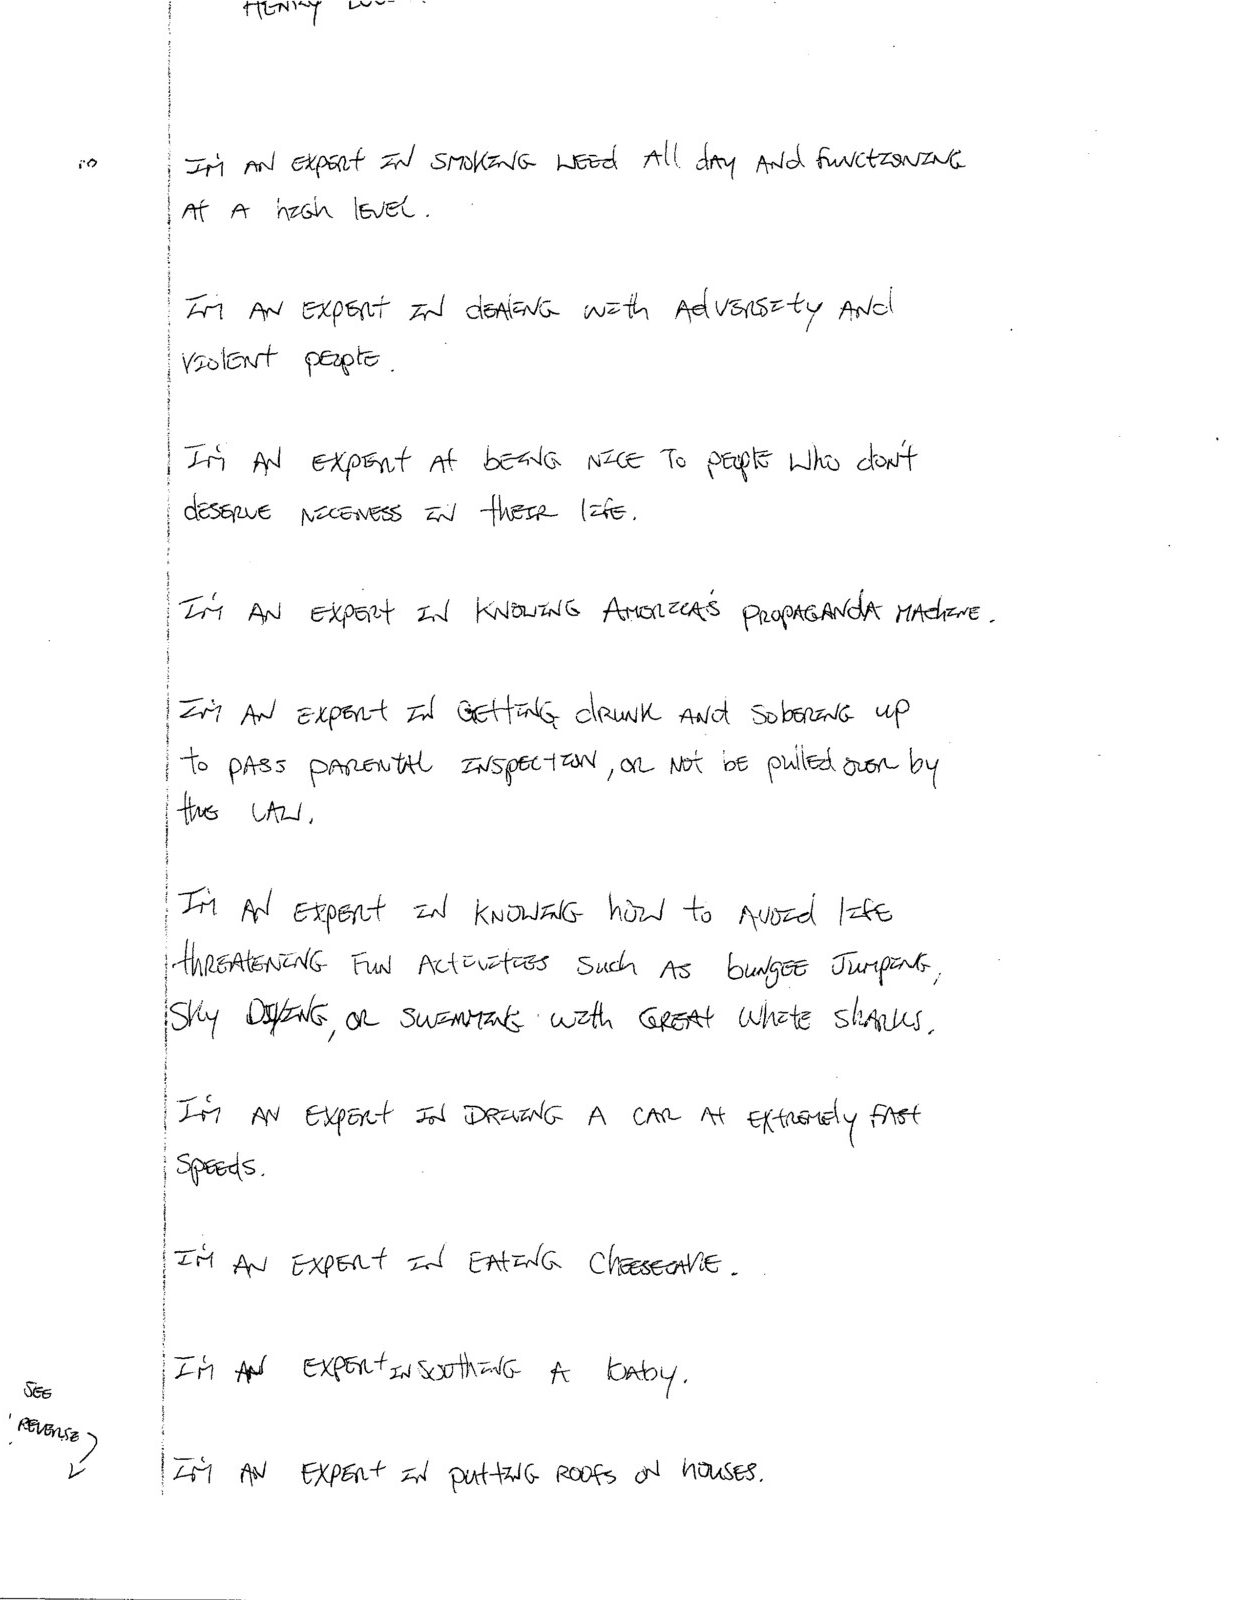 HENRY
I'M AN EXPERT IN SMOKING WEED All dAY ANd fUNCTIONING
At A hIGh lEVEL.
I'M AN EXPERT IN dEALING WITh AdVERSITY ANd
VIOLENT PEOPLE.
I'M AN EXPERT At bEING NICE TO PEOPLE WhO dON'T
dESERVE NICENESS IN thEIR LIFE.
I'M AN EXPERT IN KNOWING AMERICA'S PROPAGANdA MAChINE.
I'M AN EXPERT IN GETTING dRUNK ANd SOBERING UP
to PASS PARENTAL INSPECTION, OR NOT bE pUlled OVER by
thE LAW.
I'M AN EXPERT IN KNOWING hOW to AVOId LIFE
thREATENING FUN ACTIVITIES SUCh AS bUNgEE JUMPING,
SKY DIVING, OR SWIMMING WITh GREAT WhITE ShARKS.
I'M AN EXPERT IN DRIVING A CAR At EXTREMELY FAST
SPEEdS.
I'M AN EXPERT IN EATING ChEESECAKE.
I'M AN EXPERT IN SOOThING A bAbY.
SEE
REVERSE
I'M AN EXPERT IN PUTTING ROOFS ON hOUSES.